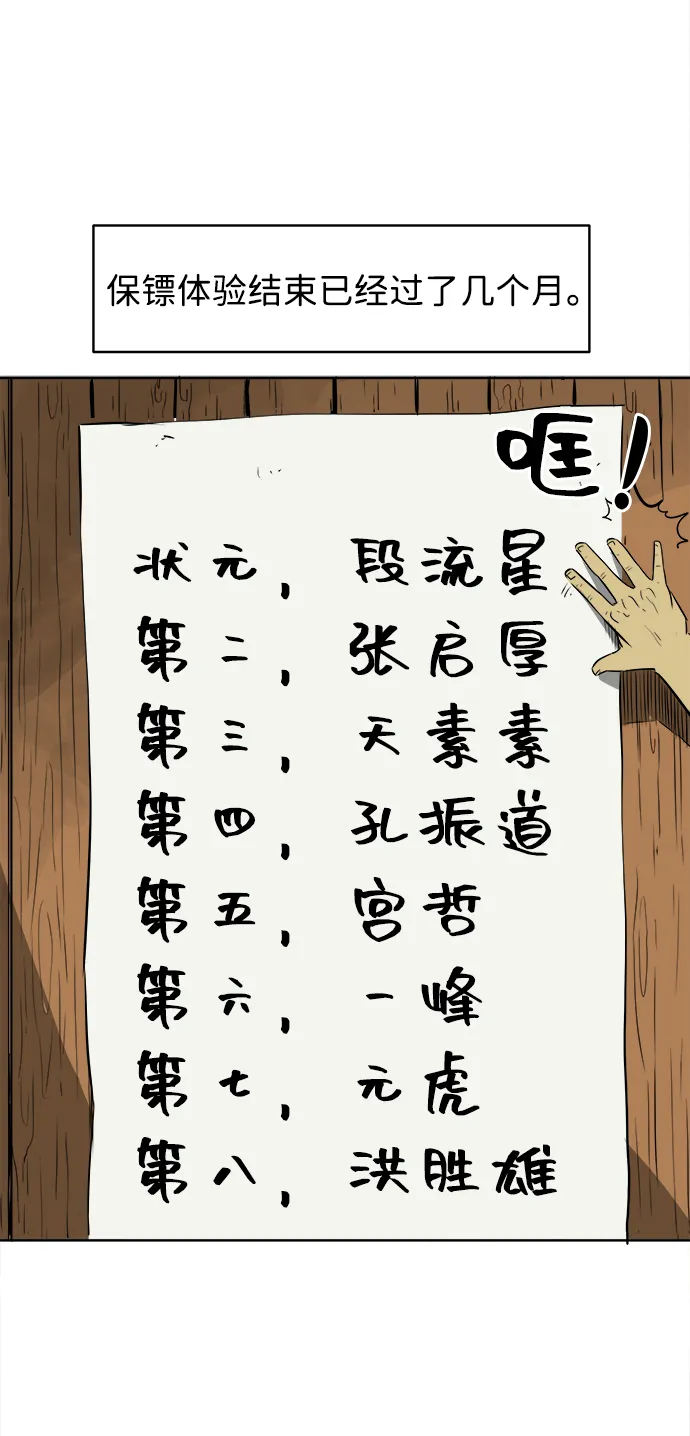 保镖体验结束已经过了几个月。
哐！
状元，段流星
第二，张启厚
第三，天素素
第四，孔振道
第五，宫哲
第六，一峰
第七，元虎
第八，洪胜雄